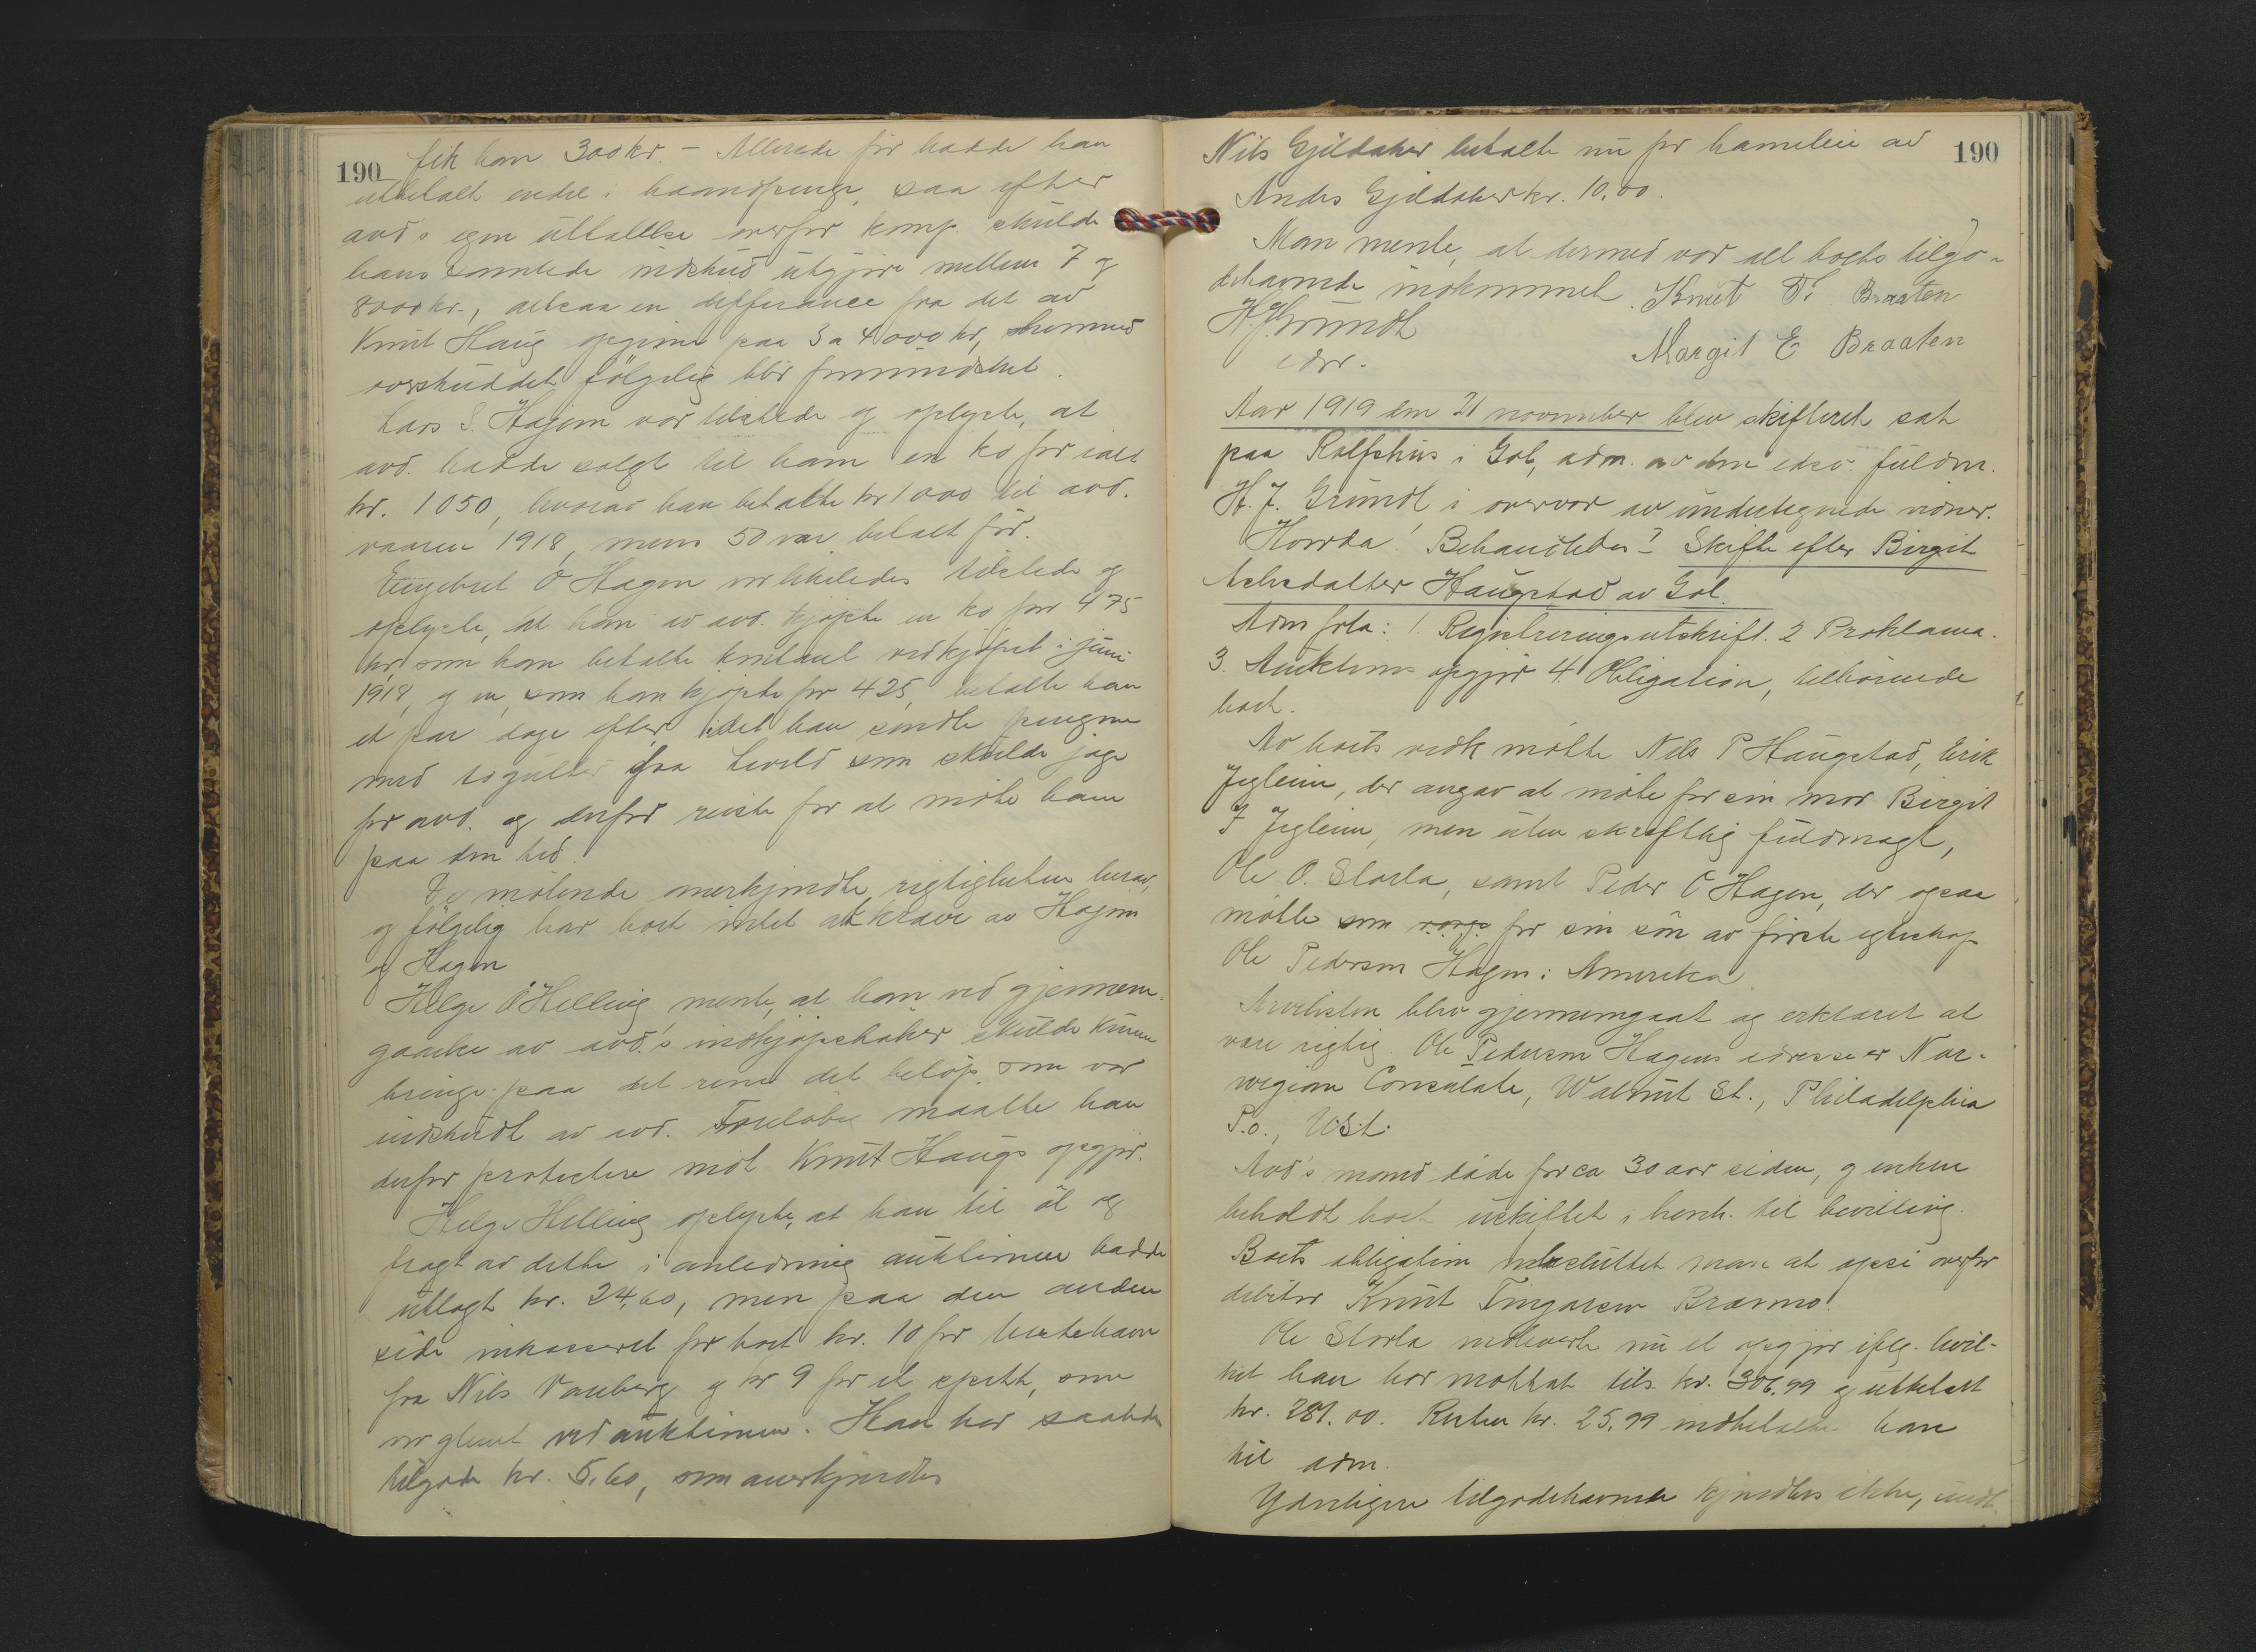 190
fik han 300 kr. – Allerede før hadde han
utbetalt endel i haandpenge, saa efter
avd's egen uttalelse overfor komp. skulde
hans samlede indskud utgjøre mellem 7 og
8000 kr., altsaa en differance fra det av
Knut Haug opgivne paa 3 a 4000 kr, hvormed
overskuddet følgelig blir formindsket.
Lars S. Hagen var tilstede og oplyste, at
avd. hadde solgt til ham en ko for ialt
kr. 1050, hvorav han betalte kr 1000 til avd.
vaaren 1918, mens 50 var betalt før.
Engebret O Hagen var likeledes tilstede og
oplyste, at han av avd. kjøpte en ko for 475
kr, som han betalte kontant ved kjøpet i juni
1918, og en, som han kjøpte for 425, betalte han
et par dage efter, idet han sendte pengene
med to gutter fra Leveld som skulde jage
for avd. og derfor reiste for at møte ham
paa den tid.
De møtende anerkjendte rigtigheten herav,
og følgelig har boet intet at kræve av Hagen
og Hagen
Helge O Helling mente, at han ved gjennem-
gaaelse av avd.'s indkjøpsbøker skulde kunne
bringe paa det rene det beløp, som var
indskudt av avd. Foreløbig maatte han
derfor protestere mot Knut Haugs opgjør.
Helge Helling oplyste, at han til øl og
fragt av dette i anledning auktionen hadde
utlagt kr. 24,60, men paa den anden
side inkasseret for boet kr. 10 for hestehavn
fra Nils Vauberg og kr 9 for et spett, som
var glemt ved auktionen. Han har saaledes
tilgode kr. 5,60, som anerkjendtes
190
Nils Gjeldaker betalte nu for hamnleie av
Andrs Gjeldaker kr. 10.00.
Man mente, at dermed var alt boets tilgo-
dehavende indkommet. Knut T. Braaten
H. J. Grundt Margit E Braaten
edsv.
Aar 1919 den 21 november blev skifteret sat
paa Rolfshus i Gol, adm. av den edsv. fuldm.
H. J. Grundt i overvær av undertegnede vidner.
Hvorda! Behandledes: Skifte efter Birgit
Asledatter Haugstad av Gol.
Adm frla: 1. Registreringsutskrift. 2 Proklama.
3. Auktions opgjør 4. Obligation, tilhørende
boet.
Av boets vedk møtte Nils P Haugstad, Erik
Jegleim, der angav at møte for sin mor Birgit
J Jegleim, men uten skriftlig fuldmagt,
Ole O. Storla, samt Peder O Hagen, der ogsaa
møtte som verge for sin søn av første egteskap
Ole Pedersen Hagen i Amerika
Arvelisten blev gjennemgaat og erklæret at
være rigtig. Ole Pedersen Hagens adresse er Nor-
wegian Consulate, Walnut St., Philadelphia
P.a., U.S.A.
Avd's mand døde for ca 30 aar siden, og enken
beholdt boet uskiftet i henh. til bevilling.
Boets obligation besluttet man at opsi overfor
debitor Knut Tingarson Brænno.
Ole Storla indleverte nu et opgjør iflg. hvil-
ket han har mottat tils. kr. 306.99 og utbetalt
kr. 281.00. Resten kr. 25.99 indbetalte han
til adm.
Yderligere tilgodehavende kjendtes ikke, undt.